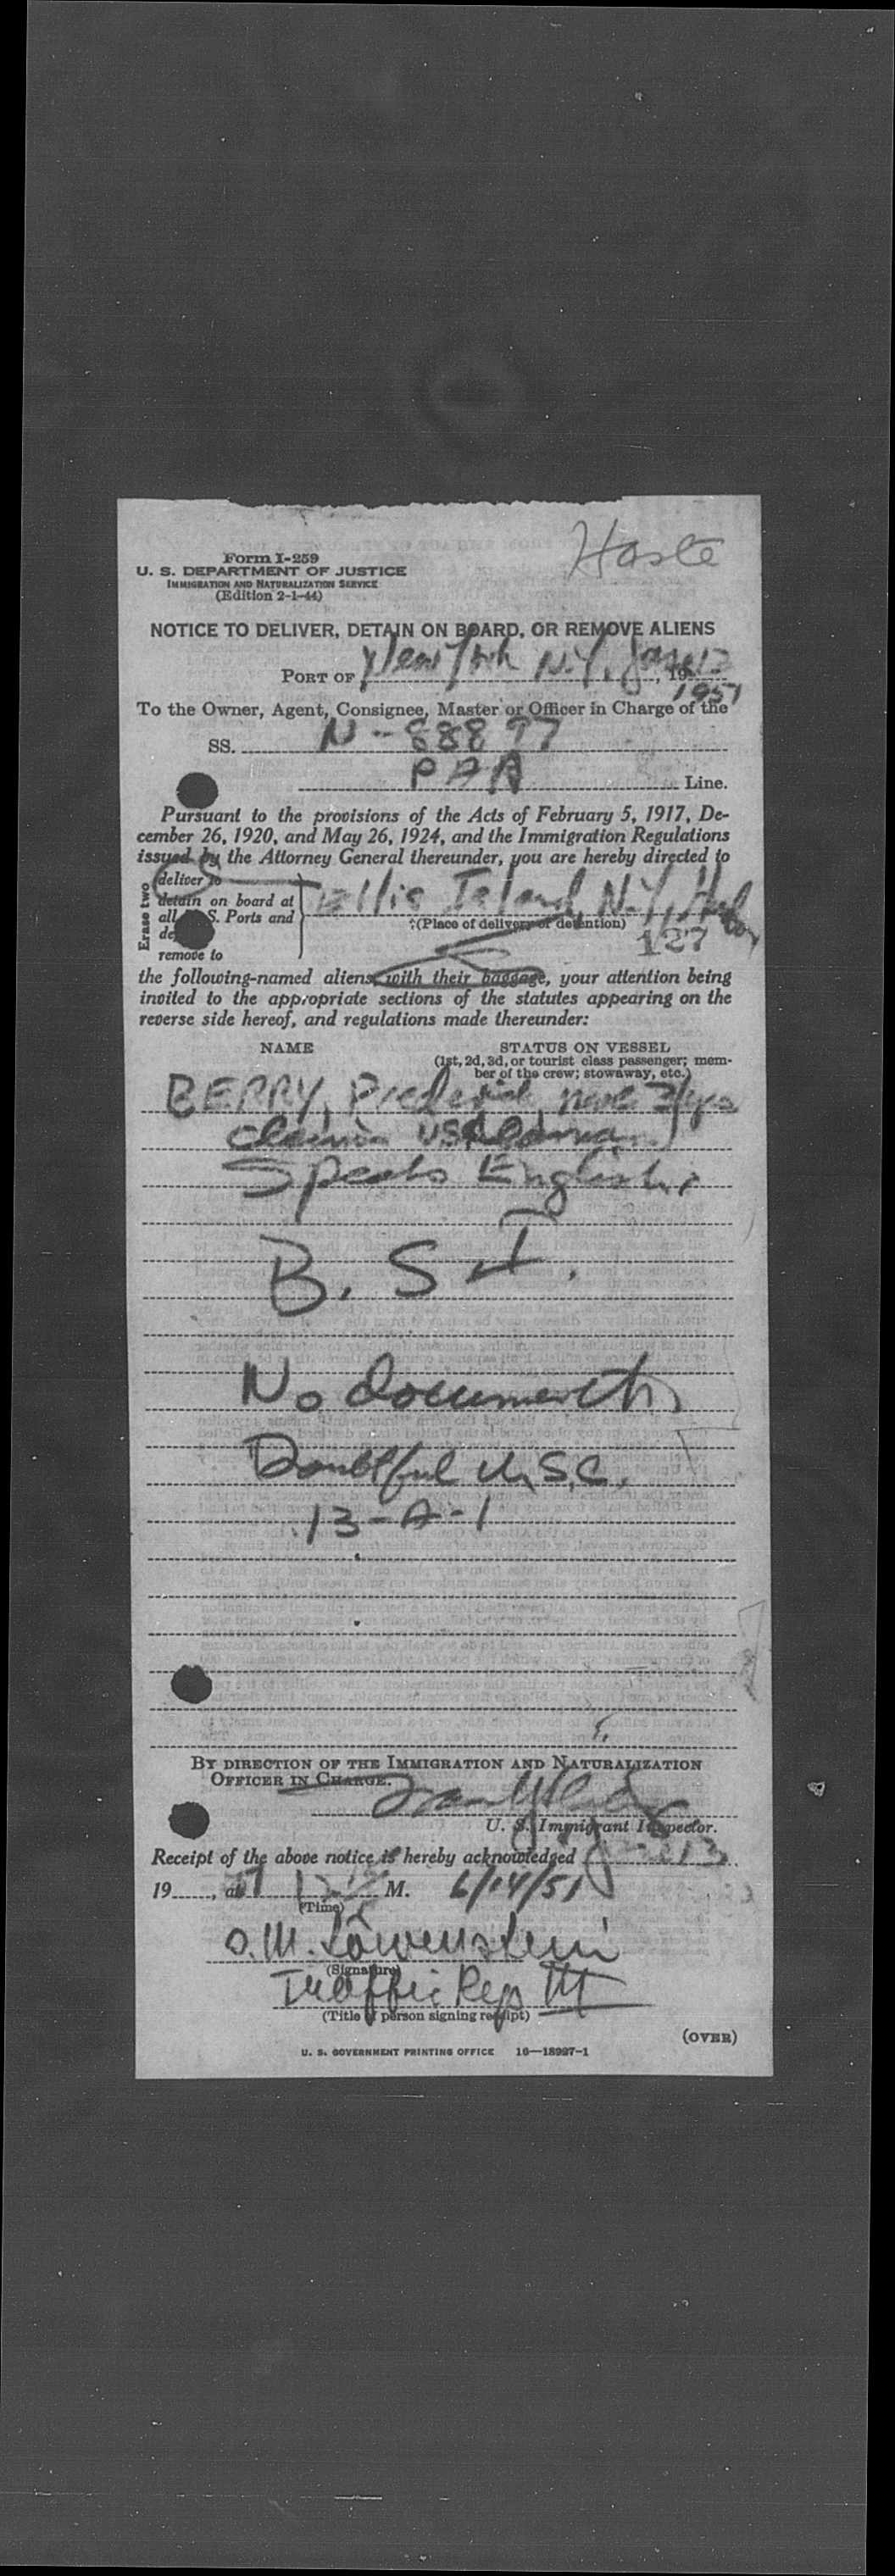 Haste
Form I-259
U. S. DEPARTMENT OF JUSTICE
IMMIGRATION AND NATURALIZATION SERVICE
(Edition 2-1-44)
NOTICE TO DELIVER, DETAIN ON BOARD, OR REMOVE ALIENS
PORT OF New York N.Y., 19
1951
To the Owner, Agent, Consignee, Master or Officer in Charge of the
SS. N-88897
PAA Line.
Pursuant to the provisions of the Acts of February 5, 1917, De-
cember 26, 1920, and May 26, 1924, and the Immigration Regulations
issued by the Attorney General thereunder, you are hereby directed to
Erase two
deliver to
detain on board at
all U. S. Ports and
remove to
Ellis Island, N.Y. Harbor
(Place of delivery or detention)
127
the following-named aliens, with their baggage, your attention being
invited to the appropriate sections of the statutes appearing on the
reverse side hereof, and regulations made thereunder:
NAME STATUS ON VESSEL
(1st, 2d, 3d, or tourist class passenger; mem-
ber of the crew; stowaway, etc.)
BERRY, Frederick
claims
Speaks English,
B. S I.
No documents
Doubtful U.S.C.
13-A-1
BY DIRECTION OF THE IMMIGRATION AND NATURALIZATION
OFFICER IN CHARGE.
U. S. Immigrant Inspector.
Receipt of the above notice is hereby acknowledged
19, at M. 6/14/51
(Time)
O. M. Löwenstein
(Signature)
Traffic Rep III
(Title of person signing receipt)
(OVER)
U. S. GOVERNMENT PRINTING OFFICE 16—18997-1